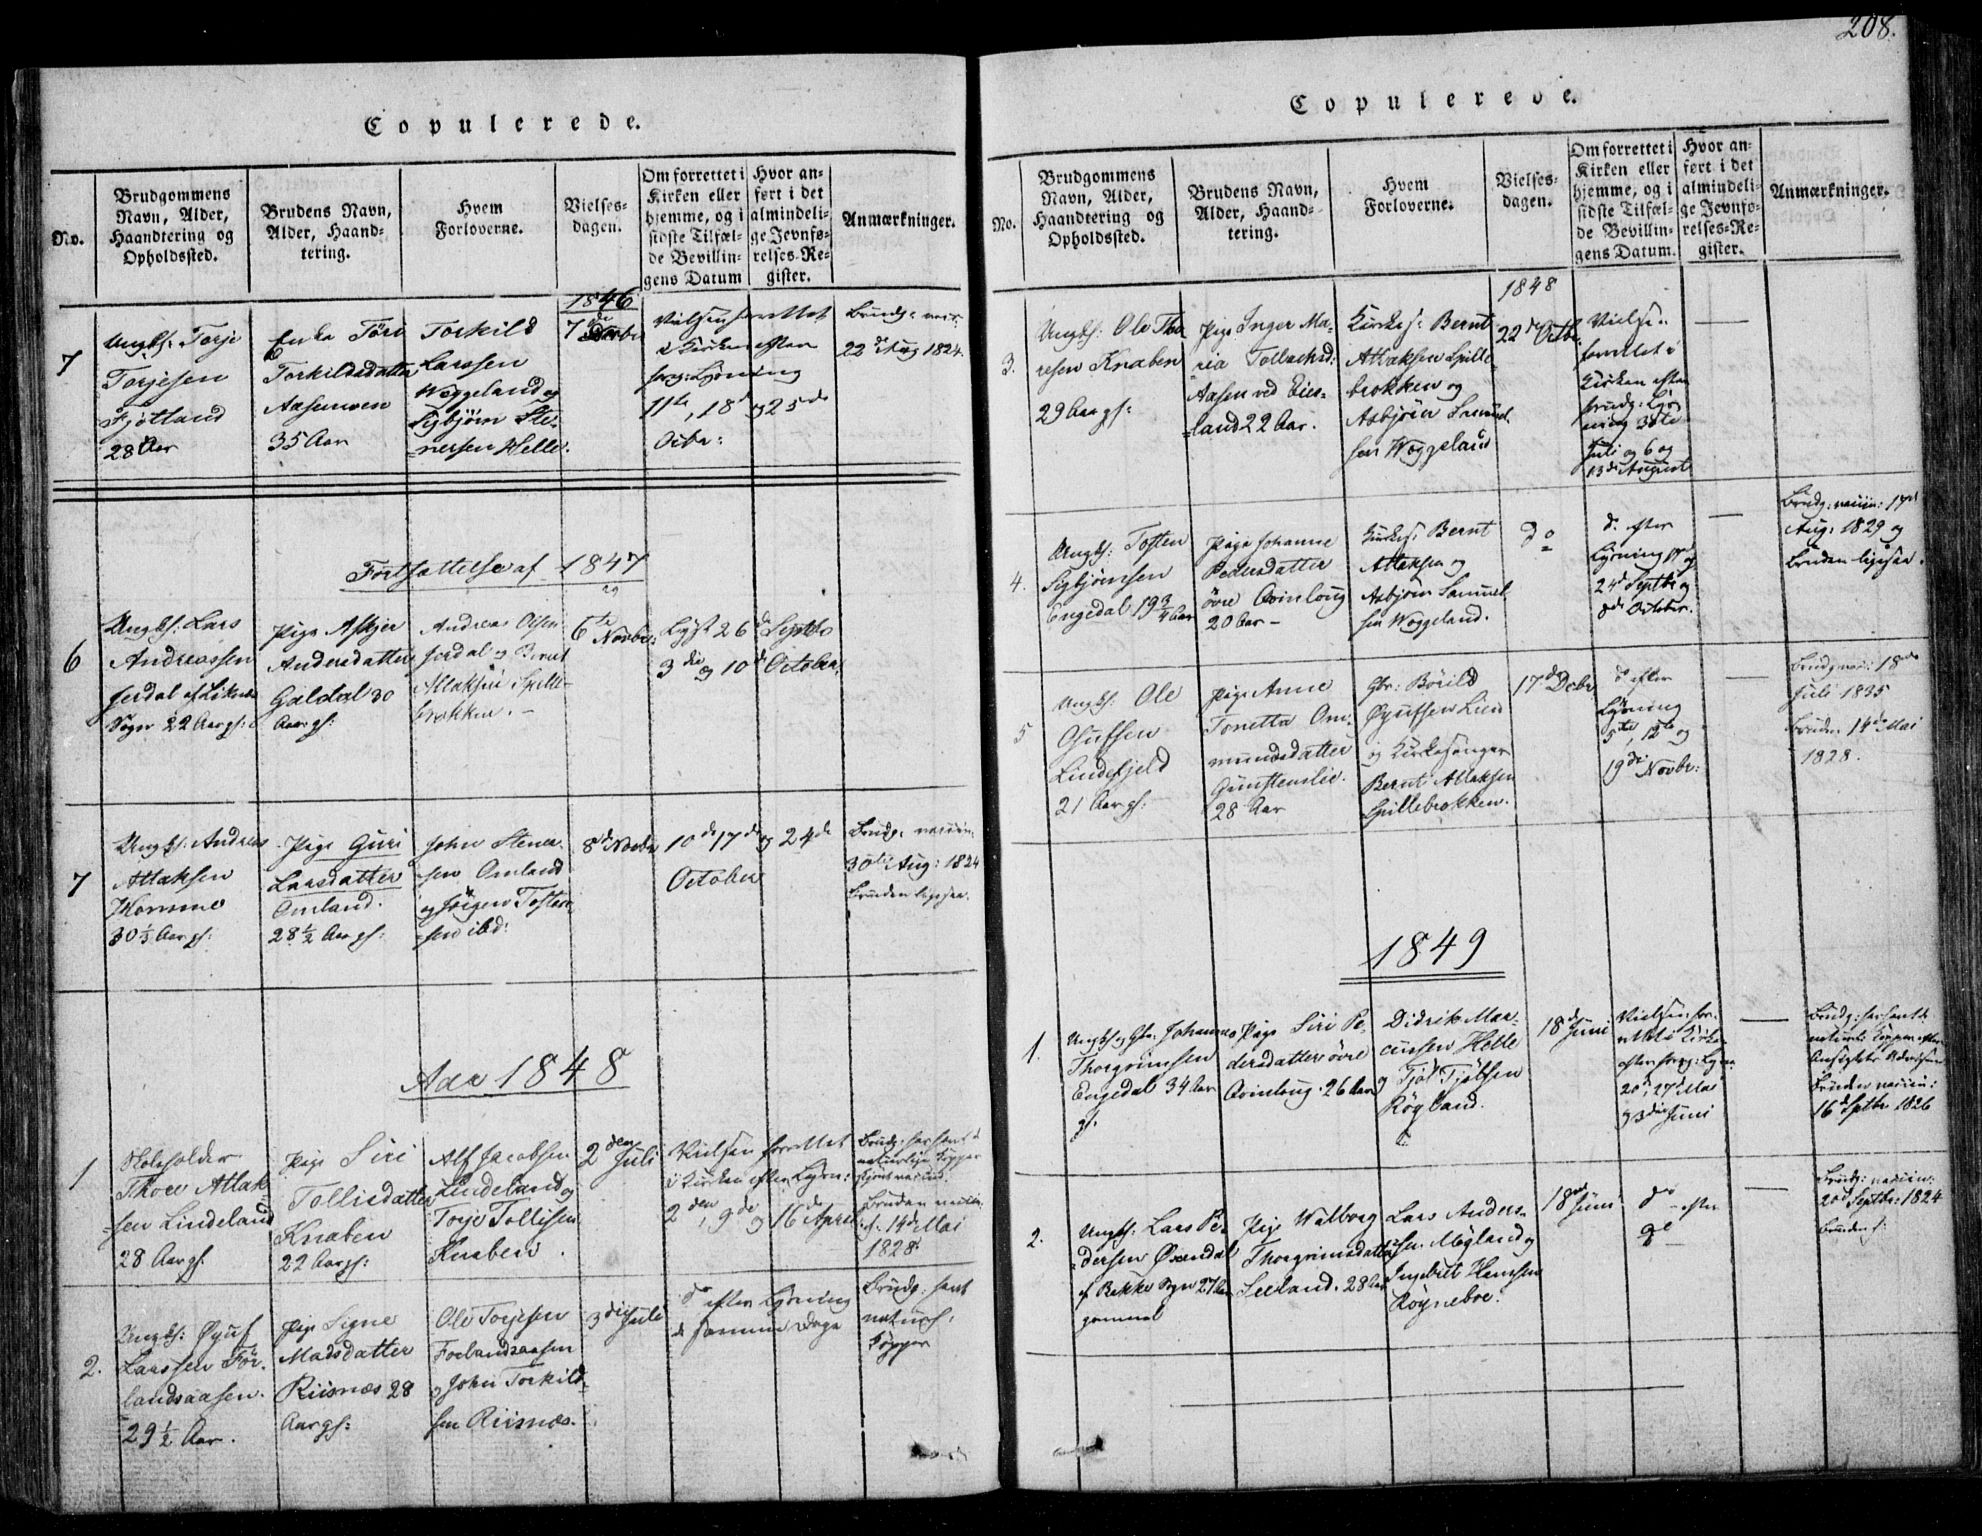 208.
Copulerede.
No.
Brudgommens
Navn, Alder,
Haandtering og
Opholdssted.
Brudens Navn,
Alder, Haand-
tering.
Hvem
Forloverne.
Vielses-
dagen.
Om forrettet i
Kirken eller
hjemme, og i
sidste Tilfæl-
de Bevillin-
gens Datum
Hvor an-
ført i det
almindeli-
ge Jevnfø-
relses-Re-
gister.
Anmærkninger.
1846
7
Ungk: Torje
Torjesen
Fjotland
28 Aar
Enke Töri
Torkildsdatter
Aasenwen
35 Aar
Torkild
Larssen
Woggeland og
Sigbjörn Ste-
nersen Helle.
7de Decbr
Vielsen forrettet
i Kirken efter
foreg: Lysning
11te, 18de og 25de
Octbr:
Brudg: vacc:
22de Aug 1824.
Fortsættelse af 1847
6
Ungk: Lars
Andreassen
Jerdal af Liknes
Sogn 22 Aar gl:
Pige Askjer
Andersdatter
Galdal 30
Aar gl:
Andreas Olsen
Jerdal og Bernt
Atlaksen Spille-
brokken. -
6te Novbr:
Lyst 26de Septbr
3die og 10de October
7
Ungk: Andreas
Atlaksen
Homme
30 1/3 Aar gl:
Pige Guri
Larsdatter
Omland.
28 1/2 Aar gl:
John Stener-
sen Omland
og Jörgen Tosten-
sen ibd:
8de Novbr
10de 17de og 24de
October
Brudg: vaccin:
30te Aug: 1824
Bruden ligesaa.
Aar 1848
1
Skoleholder
Thore Atlak-
sen Lindeland
28 Aar gl.
Pige Siri
Tollisdatter
Knaben
22 Aar gl:
Alf Jacobsen
Lindeland og
Torje Tollisen
Knaben.
2den Juli
Vielsen forrettet
i Kirken efter Lysn:
2den, 9de og 16de April
Brudg: har havt de
naturlige Kopper
Bruden vaccin.
d. 14de Mai
1828
2.
Ungk: Øyuf
Larssen För-
landsaasen.
29 1/2 Aar.
Pige Signe
Madsdatter
Risnæs 28
Aar gl:
Ole Torjesen
Forlandsaasen
og John Torkild-
sen Risnæs.
3die Juli
do efter Lysning
de samme Dage
Brudg: havt
naturl:
Kopper
Copulerede.
No.
Brudgommens
Navn, Alder,
Haandtering og
Opholdssted.
Brudens Navn,
Alder, Haand-
tering.
Hvem
Forloverne.
Vielses-
dagen.
Om forrettet i
Kirken eller
hjemme, og i
sidste Tilfæl-
de Bevillin-
gens Datum.
Hvor an-
ført i det
almindeli-
ge Jevnfø-
relses-Re-
gister.
Anmærkninger.
1848
3.
Ungk: Ole Tho-
resen Knaben
29 Aar gl:
Pige Inger Ma-
ria Tollachsd:
Aasen ved Eies-
land 22 Aar.
Kirkes: Bernt
Atlaksen Spille-
brokken og
Asbjörn Samuel-
sen Woggeland
22de Octbr.
Vielsen
forrettet i
Kirken efter
foreg: Lys-
ning 30te
Juli og 6 og
13de August
4.
Ungk: Tosten
Sigbjörnsen
Engedal 19 3/4 Aar
Pige Johanne
Pedersdatter
övre Qvinloug
20 Aar -
Kirkes: Bernt
Atlaksen og
Asbjörn Samuel-
sen Woggeland.
do
do efter
Lysning 17de og
24de Septbr og
8de October.
Brudg: vaccin: 17de
Aug: 1829 og
Bruden ligesaa.
5
Ungk: Ole
Osuffsen
Lindefjeld
21 Aar gl:
Pige Anne
Tonetta Om-
mundsdatter
Gunstenslie.
28 Aar
Gbr: Börild
Øyuffsen Lien
og Kirkesanger
Bernt Atlaksen
Spillebrokken.
17de Decbr
do efter
Lysning
5te, 12te og
19de Novbr:
Brudg. vac: 18de
Juli 1835
Bruden 14de Mai
1828.
1849
1.
Ungk og Gbr. Johannes
Thorgrimsen
Engedal 34 Aar
gl.
Pige Siri Pe-
dersdatter övre
Qvinloug. 26 Aar
Didrik Mar-
cussen Helle
og Tjöl Tjölsen
Röyland.
18de Juni
Vielsen for-
rettet i Kirken
efter foreg: Lysn.
20de, 27de Mai
og 3die Juni
Brudg: har havt de
naturl: Kopper efter
Ansigtets Udvisende
Bruden vaccin:
16de Septbr 1826
2.
Ungk: Lars Pe-
dersen Øxendal
af Bakke Sogn 27 Aar
gammel
Pige Walborg
Thorgrimsdatter
Seeland. 28 Aar
Lars Anders-
sen Möyland og
Ingebret Hansen
Röynebroe.
18de Juni
do efter
do
Brudg: vaccin:
20de Septbr: 1824